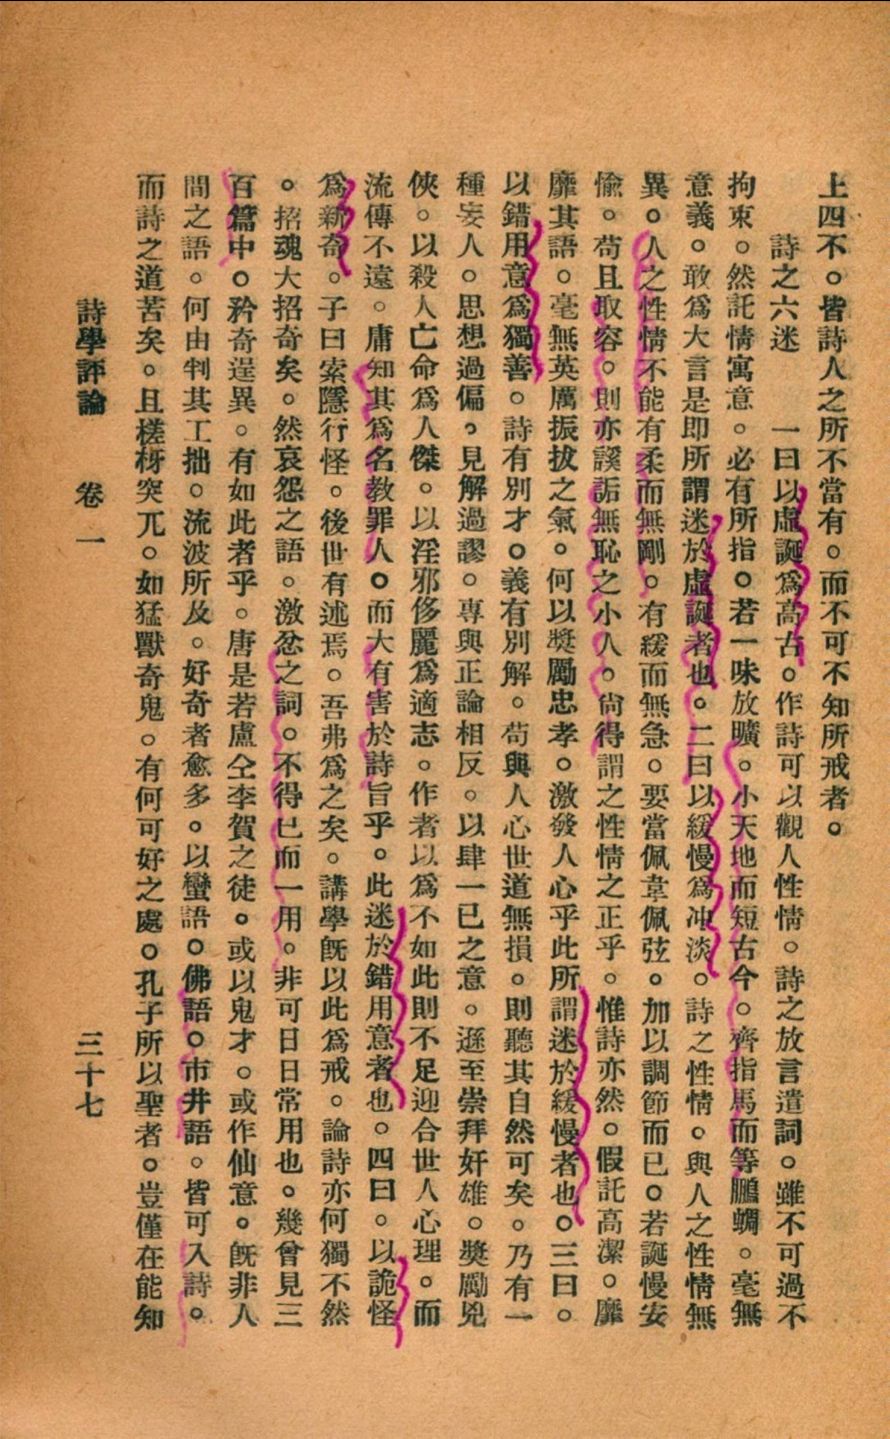 上四不。皆詩人之所不當有。而不可不知所戒者。
詩之六迷　一曰以虛誕爲高古。作詩可以觀人性情。詩之放言遣詞。雖不可過不
拘束。然託情寓意。必有所指。若一味放曠。小天地而短古今。齊指馬而等鵬蜩。毫無
意義。敢爲大言是即所謂迷於虛誕者也。二曰以緩慢爲冲淡。詩之性情。與人之性情無
異。人之性情不能有柔而無剛。有緩而無急。要當佩韋佩弦。加以調節而已。若誕慢安
愉。苟且取容。則亦謑詬無恥之小人。尙得謂之性情之正乎。惟詩亦然。假託高潔。靡
靡其語。毫無英厲振拔之氣。何以獎勵忠孝。激發人心乎此所謂迷於緩慢者也。三曰。
以錯用意爲獨善。詩有別才。義有別解。苟與人心世道無損。則聽其自然可矣。乃有一
種妄人。思想過偏。見解過謬。専與正論相反。以肆一已之意。遜至崇拜奸雄。獎勵兇
俠。以殺人亡命爲人傑。以淫邪侈麗爲適志。作者以爲不如此則不足迎合世人心理。而
流傳不遠。庸知其爲名教罪人。而大有害於詩旨乎。此迷於錯用意者也。四曰。以詭怪
爲新奇。子曰索隱行怪。後世有述焉。吾弗爲之矣。講學旣以此爲戒。論詩亦何獨不然
。招魂大招奇矣。然哀怨之語。激忿之詞。不得已而一用。非可日日常用也。幾曾見三
百篇中。矜奇逞異。有如此者乎。唐是若盧仝李賀之徒。或以鬼才。或作仙意。旣非人
間之語。何由判其工拙。流波所及。好奇者愈多。以蠻語。佛語。市井語。皆可入詩。
而詩之道苦矣。且槎枒突兀。如猛獸奇鬼。有何可好之處。孔子所以聖者。豈僅在能知
詩學評論　卷一　三十七